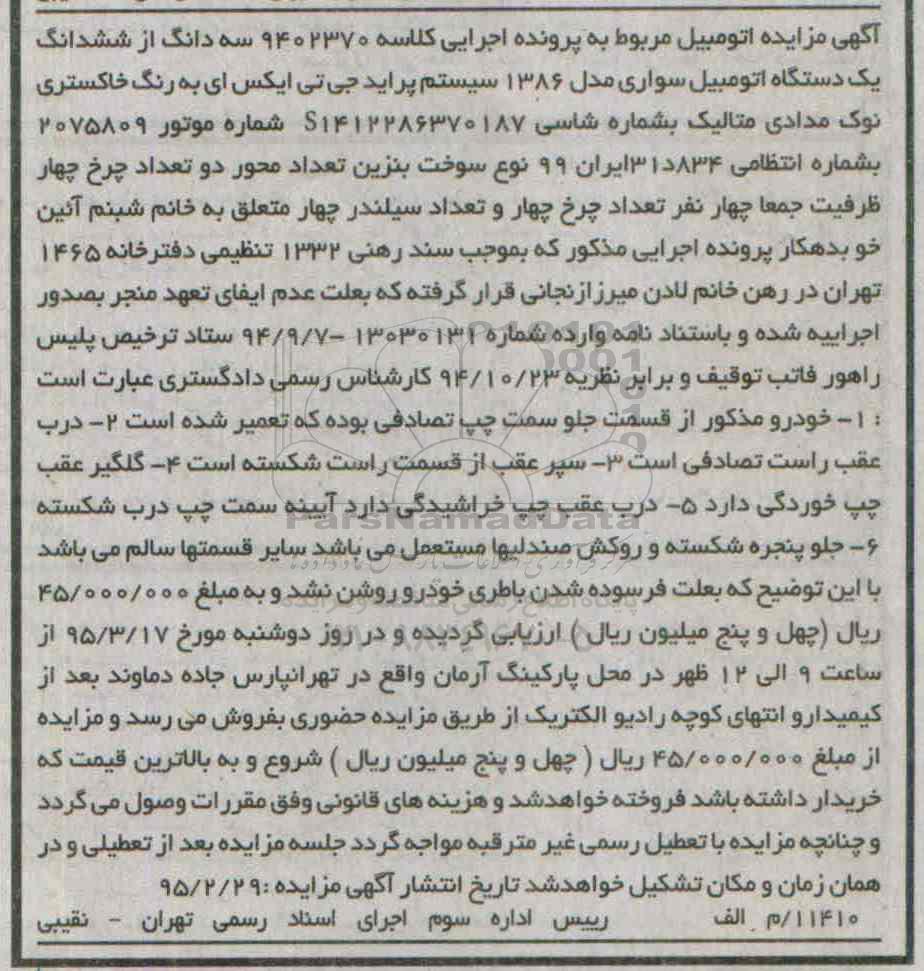 آگهی مزایده اتومبیل مربوط به پرونده اجرایی کلاسه ۹۴۰۲۳۷۰ سه دانگ از ششدانگ
یک دستگاه اتومبیل سواری مدل ۱۳۸۶ سیستم پراید جی تی ایکس ای به رنگ خاکستری
نوک مدادی متالیک بشماره شاسی S۱۴۱۲۲۸۶۳۷۰۱۸۷ شماره موتور ۲۰۷۵۸۰۹
بشماره انتظامی ۸۳۴د۳۱ایران ۹۹ نوع سوخت بنزین تعداد محور دو تعداد چرخ چهار
ظرفیت جمعا چهار نفر تعداد چرخ چهار و تعداد سیلندر چهار متعلق به خانم شبنم آئین
خو بدهکار پرونده اجرایی مذکور که بموجب سند رهنی ۱۳۳۲ تنظیمی دفترخانه ۱۴۶۵
تهران در رهن خانم لادن میرزازنجانی قرار گرفته که بعلت عدم ایفای تعهد منجر بصدور
اجراییه شده و باستناد نامه وارده شماره ۱۳۰۳۰۱۳۱ –۹۴/۹/۷ ستاد ترخیص پلیس
راهور فاتب توقیف و برابر نظریه ۹۴/۱۰/۲۳ کارشناس رسمی دادگستری عبارت است
: ۱- خودرو مذکور از قسمت جلو سمت چپ تصادفی بوده که تعمیر شده است ۲- درب
عقب راست تصادفی است ۳- سپر عقب از قسمت راست شکسته است ۴- گلگیر عقب
چپ خوردگی دارد ۵- درب عقب چپ خراشیدگی دارد آیینه سمت چپ درب شکسته
۶- جلو پنجره شکسته و روکش صندلیها مستعمل می باشد سایر قسمتها سالم می باشد
با این توضیح که بعلت فرسوده شدن باطری خودرو روشن نشد و به مبلغ ۴۵/۰۰۰/۰۰۰
ریال (چهل و پنج میلیون ریال ) ارزیابی گردیده و در روز دوشنبه مورخ ۹۵/۳/۱۷ از
ساعت ۹ الی ۱۲ ظهر در محل پارکینگ آرمان واقع در تهرانپارس جاده دماوند بعد از
کیمیدارو انتهای کوچه رادیو الکتریک از طریق مزایده حضوری بفروش می رسد و مزایده
از مبلغ ۴۵/۰۰۰/۰۰۰ ریال ( چهل و پنج میلیون ریال ) شروع و به بالاترین قیمت که
خریدار داشته باشد فروخته خواهدشد و هزینه های قانونی وفق مقررات وصول می گردد
و چنانچه مزایده با تعطیل رسمی غیر مترقبه مواجه گردد جلسه مزایده بعد از تعطیلی و در
همان زمان و مکان تشکیل خواهدشد تاریخ انتشار آگهی مزایده :۹۵/۲/۲۹
۱۱۴۱۰/م الف رییس اداره سوم اجرای اسناد رسمی تهران - نقیبی
ParsNamadData